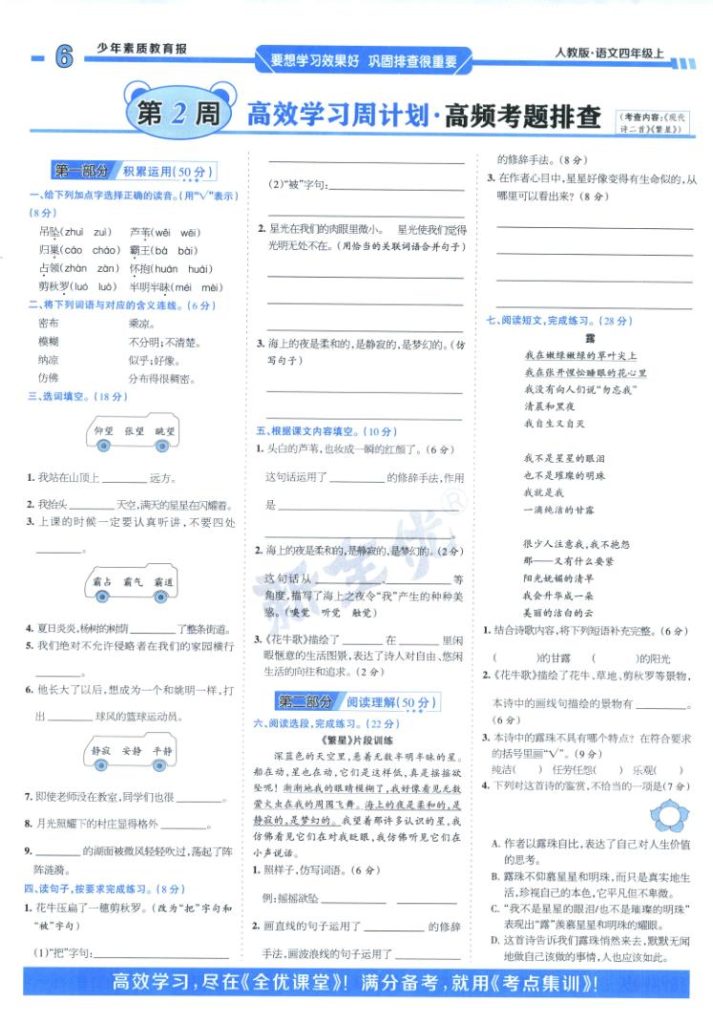 6
少年素质教育报
要想学习效果好 巩固排查很重要
人教版·语文四年级上
第2周
高效学习周计划·高频考题排查
(考查内容:《现代
诗二首》《繁星》)
第一部分 积累运用(50分)
一、给下列加点字选择正确的读音。(用“√”表示)
(8分)
吊坠(zhuì zuì) 芦苇(wěi wēi)
归巢(cáo cháo) 霸王(bà bài)
占领(zhàn zàn) 怀抱(huán huái)
剪秋罗(luó luò) 半明半昧(méi mèi)
二、将下列词语与对应的含义连线。(6分)
密布 乘凉。
模糊 不分明;不清楚。
纳凉 似乎;好像。
仿佛 分布得很稠密。
三、选词填空。(18分)
仰望 张望 眺望
1. 我站在山顶上________远方。
2. 我抬头________天空,满天的星星在闪耀着。
3. 上课的时候一定要认真听讲,不要四处
________。
霸占 霸气 霸道
4. 夏日炎炎,杨树的树荫________了整条街道。
5. 我们绝对不允许侵略者在我们的家园横行
________。
6. 他长大了以后,想成为一个和姚明一样,打
出________球风的篮球运动员。
静寂 安静 平静
7. 即使老师没在教室,同学们也很________。
8. 月光照耀下的村庄显得格外________。
9. ________的湖面被微风轻轻吹过,荡起了阵
阵涟漪。
四、读句子,按要求完成练习。(8分)
1. 花牛压扁了一穗剪秋罗。(改为“把”字句和
“被”字句)
(1)“把”字句:________
(2)“被”字句:________
2. 星光在我们的肉眼里微小。 星光使我们觉得
光明无处不在。(用恰当的关联词语合并句子)
3. 海上的夜是柔和的,是静寂的,是梦幻的。(仿
写句子)
五、根据课文内容填空。(10分)
1. 头白的芦苇,也妆成一瞬的红颜了。(6分)
这句话运用了________的修辞手法,作用
是________
2. 海上的夜是柔和的,是静寂的,是梦幻的。(2分)
这句话从________等
角度,描写了海上之夜令“我”产生的种种美
感。(嗅觉 听觉 触觉)
3.《花牛歌》描绘了________在________里闲
暇惬意的生活图景,表达了诗人对自由、悠闲
生活的向往和追求。(2分)
第二部分 阅读理解(50分)
六、阅读选段,完成练习。(22分)
《繁星》片段训练
深蓝色的天空里,悬着无数半明半昧的星。
船在动,星也在动,它们是这样低,真是摇摇欲
坠呢!渐渐地我的眼睛模糊了,我好像看见无数
萤火虫在我的周围飞舞。海上的夜是柔和的,是
静寂的,是梦幻的。我望着那许多认识的星,我
仿佛看见它们在对我眨眼,我仿佛听见它们在
小声说话。
1. 照样子,仿写词语。(6分)
例:摇摇欲坠 ________ ________
2. 画直线的句子运用了________的修辞
手法,画波浪线的句子运用了________
的修辞手法。(8分)
3. 在作者心目中,星星好像变得有生命似的,从
哪里可以看出来?(8分)
七、阅读短文,完成练习。(28分)
露
我在嫩绿嫩绿的草叶尖上
我在张开惺忪睡眼的花心里
我没有向人们说“勿忘我”
清晨和黑夜
我自生又自灭
我不是星星的眼泪
也不是璀璨的明珠
我就是我
一滴纯洁的甘露
很少人注意我,我不抱怨
那——又有什么要紧
阳光妩媚的清早
我会升华成一朵
美丽的洁白的云
1. 结合诗歌内容,将下列短语补充完整。(6分)
( )的甘露 ( )的阳光
2.《花牛歌》描绘了花牛、草地、剪秋罗等景物,
本诗中的画线句描绘的景物有________。
(6分)
3. 本诗中的露珠不具有哪个特点? 在符合要求
的括号里画“√”。(9分)
纯洁( ) 任劳任怨( ) 乐观( )
4. 下列对这首诗的鉴赏,不恰当的一项是(7分)
A. 作者以露珠自比,表达了自己对人生价值
的思考。
B. 露珠不仰慕星星和明珠,而只是真实地生
活,珍视自己的本色,它平凡但不卑微。
C. “我不是星星的眼泪/也不是璀璨的明珠”
表现出“露”羡慕星星和明珠的耀眼。
D. 这首诗告诉我们露珠悄然来去,默默无闻
地做自己该做的事情,人也应该如此。
高效学习,尽在《全优课堂》! 满分备考,就用《考点集训》!